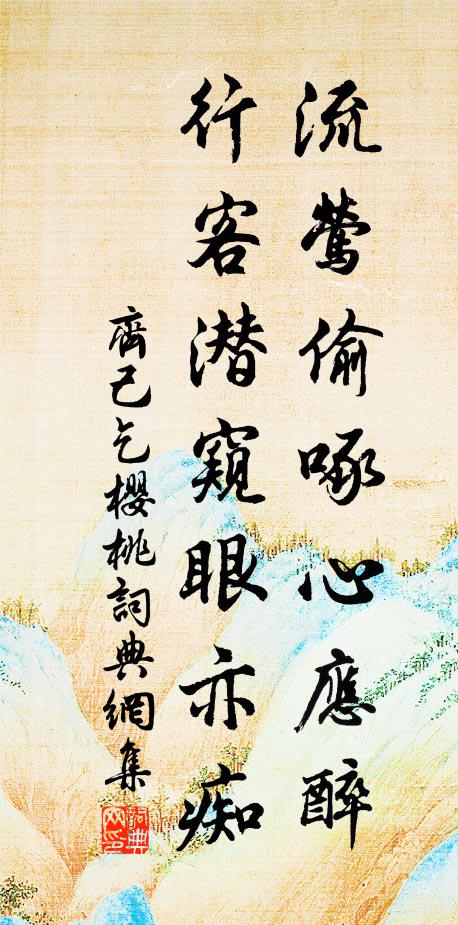 流莺偷啄心應醉
行客潜窺眼亦痴
齊己乞櫻桃詞典網集
詞典